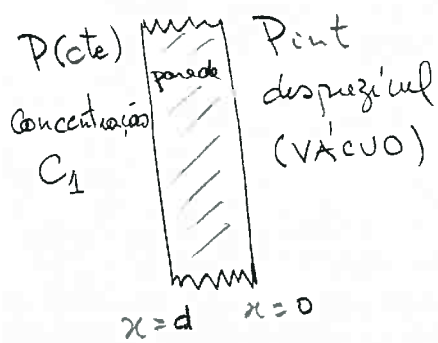 P(cte)
Concentração
C₁
parede
Pint
desprezível
(VÁCUO)
x = d
x = 0